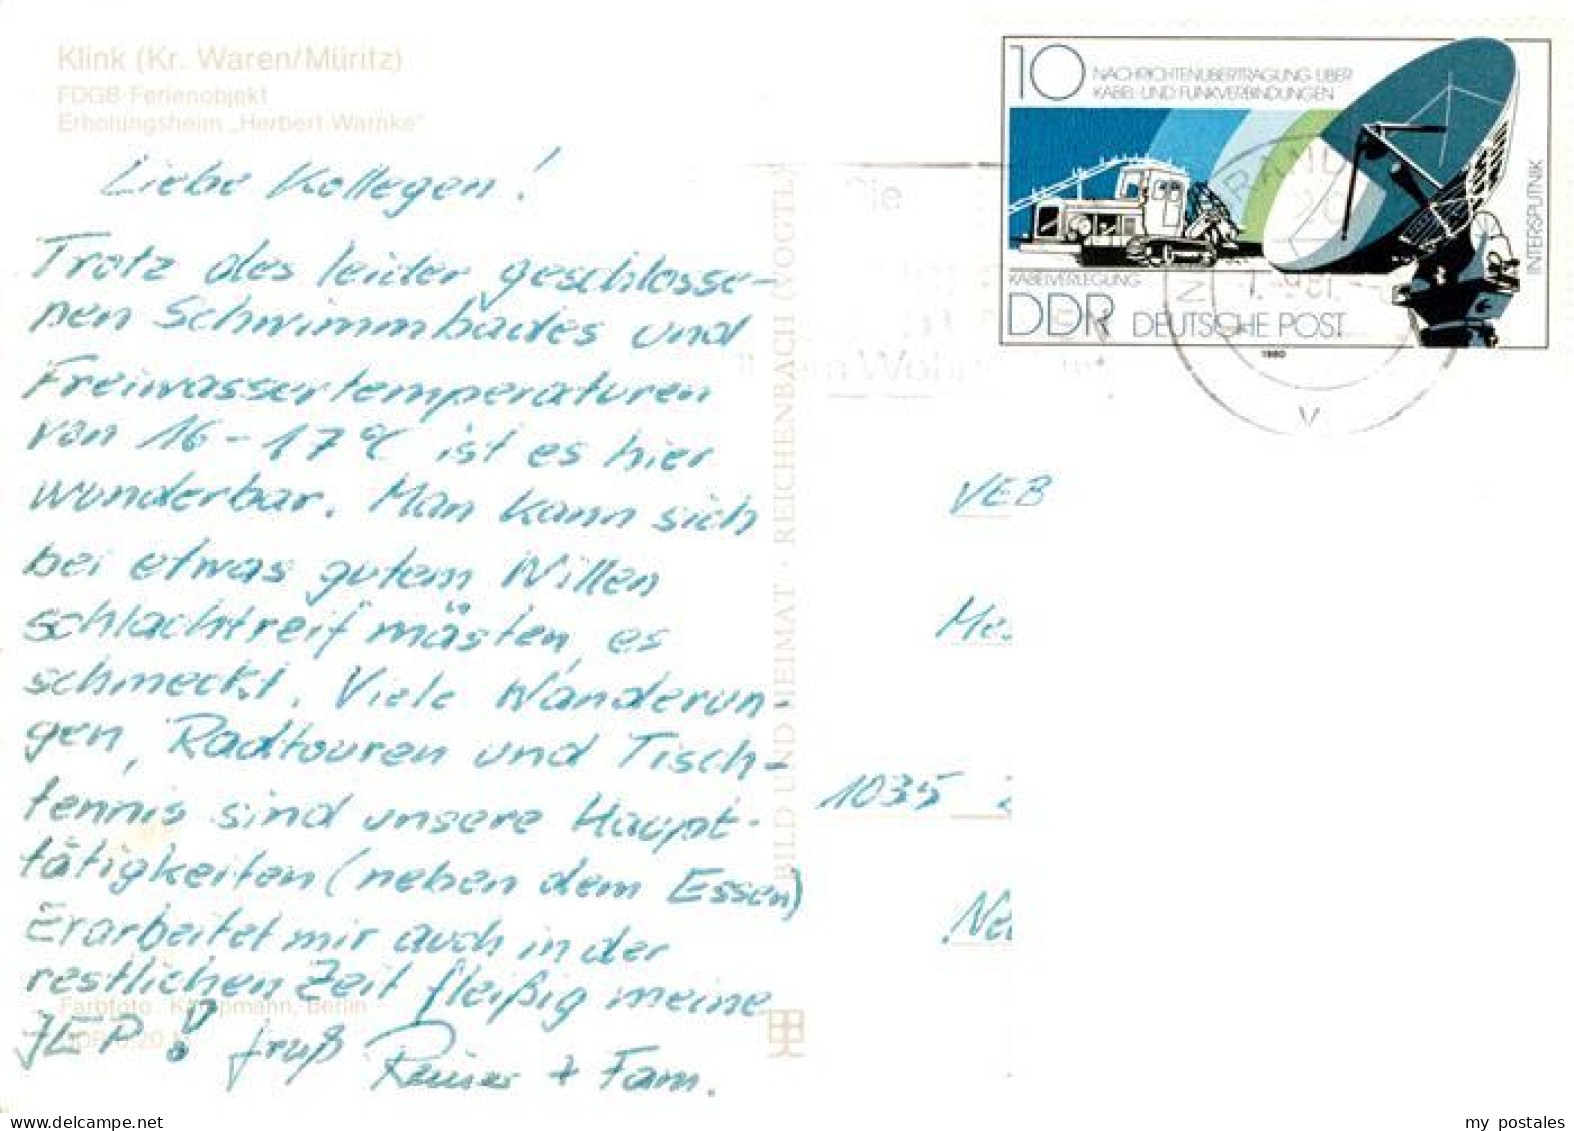 Klink (Kr. Waren/Müritz)
FDGB-Ferienobjekt
Erholungsheim „Herbert Warnke"
Liebe Kollegen!
Trotz des leider geschlosse-
nen Schwimmbades und
Freiwassertemperaturen
von 16-17°C ist es hier
wunderbar. Man kann sich
bei etwas gutem Willen
schlachtreif mästen, es
schmeckt. Viele Wanderun-
gen, Radtouren und Tisch-
tennis sind unsere Haupt-
tätigkeiten (neben dem Essen)
Erarbeitet mir auch in der
restlichen Zeit fleißig meine
JEP! Gruß Reiner + Fam.
Berlin
BILD UND HEIMAT · REICHENBACH (VOGTL
10
NACHRICHTENÜBERTRAGUNG ÜBER
KABEL- UND FUNKVERBINDUNGEN
INTERSPUTNIK
KABELVERLEGUNG
DDR DEUTSCHE POST
1980
VEB
1035
my postales